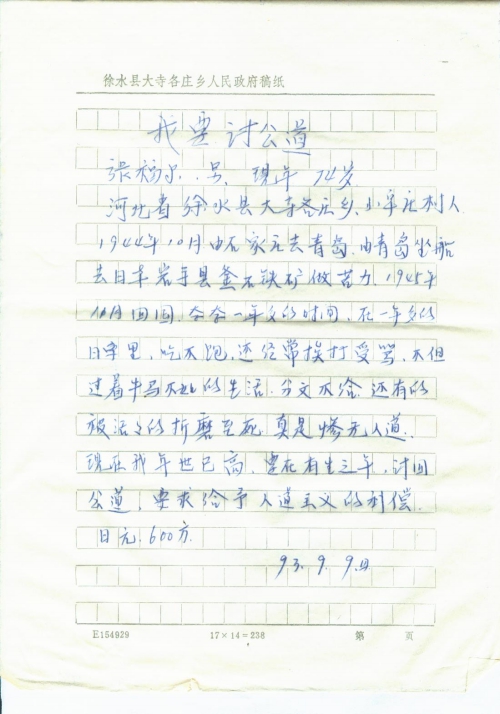 徐水县大寺各庄乡人民政府稿纸
我要讨公道
张福尔、男、现年74岁
河北省徐水县大寺各庄乡、小牟庄村人
1944年10月由石家庄去青岛.由青岛坐船
去日本岩手县釜石铁矿做苦力.1945年
11月回国.吞吞一年多的时间.在一年多的
日子里,吃不饱,还经常挨打受骂,不但
过着牛马不如的生活.分文不给.还有的
被活活的折磨至死.真是惨无人道.
现在我年世已高,要在有生之年,讨回
公道,要求给予人道主义的补偿.
日元.600万.
93.9.9.日
E154929
17×14=238
第 页